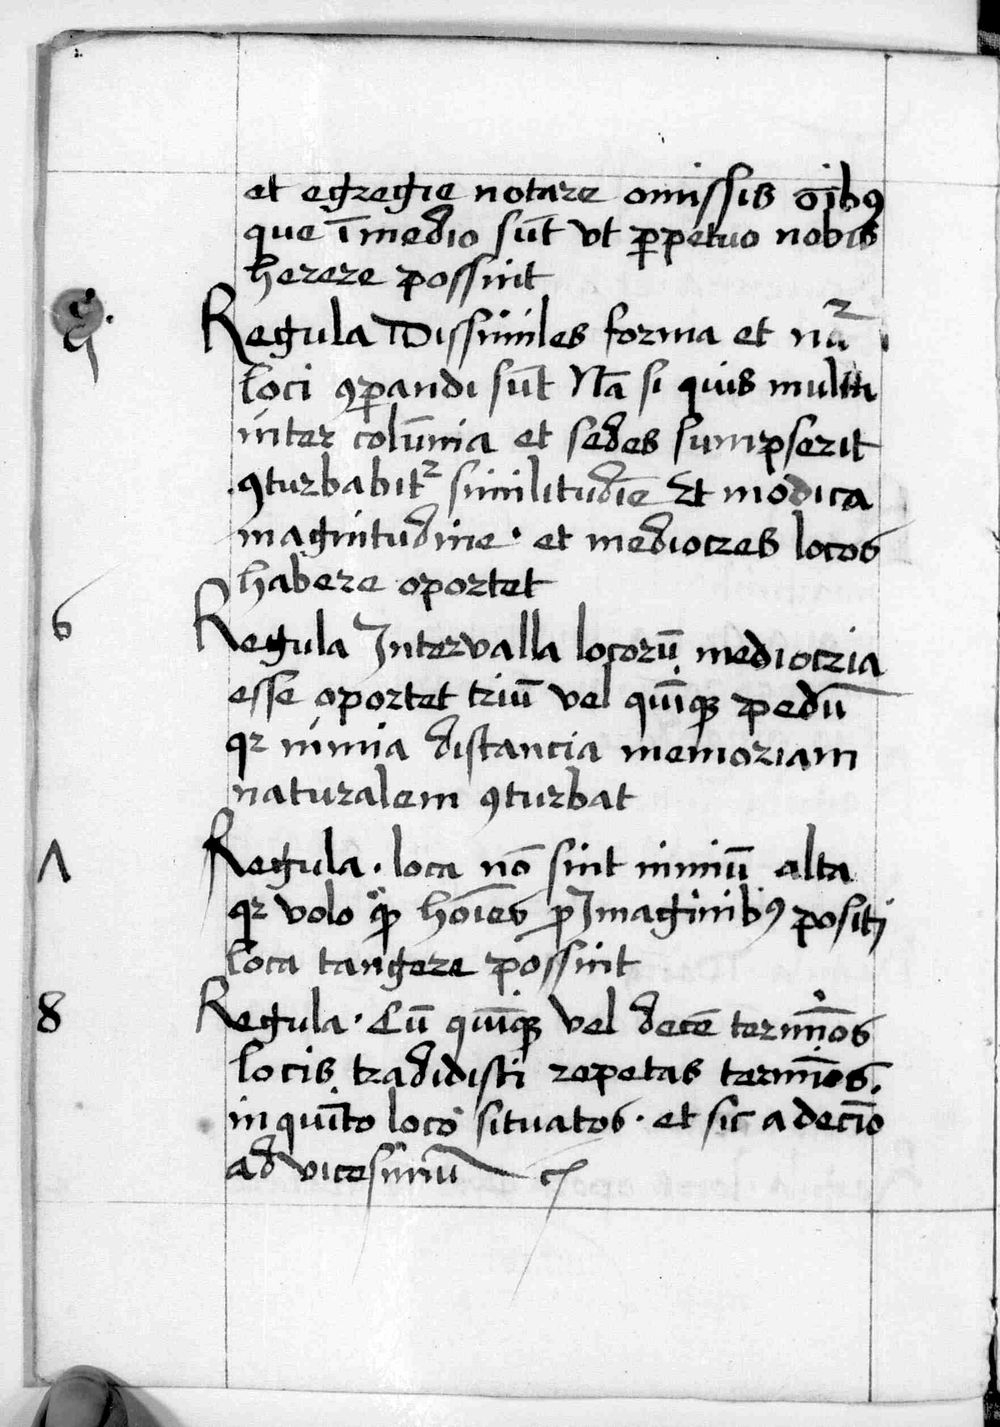 et egregie notare omissis oībꝰ
que ī medio sūt vt ꝑpetuo nobis
herere possint
5. Regula Dissimiles forma et nāꝛ
loci ꝯꝑandi sūt Nā si quis multa
inter colūnia et sedes sumpserit
ꝯturbabitꝛ similitudīe Et modica
magnitudine · et mediocres locos
habere oportet
6 Regula Intervalla locorū mediocria
esse oportet triū vel quīqꝫ pedū
qꝛ nimia distancia memoriam
naturalem ꝯturbat
Λ Regula · loca nō sint nimiū alta
qꝛ volo ꝙ hoīes ꝓ Imaginibꝰ positi
loca tangere possint
8 Regula · Cū quīqꝫ vel decē termīos
locis tradidisti repetas termīos.
in quīto loco situatos · et sic a decīo
ad vicesimū